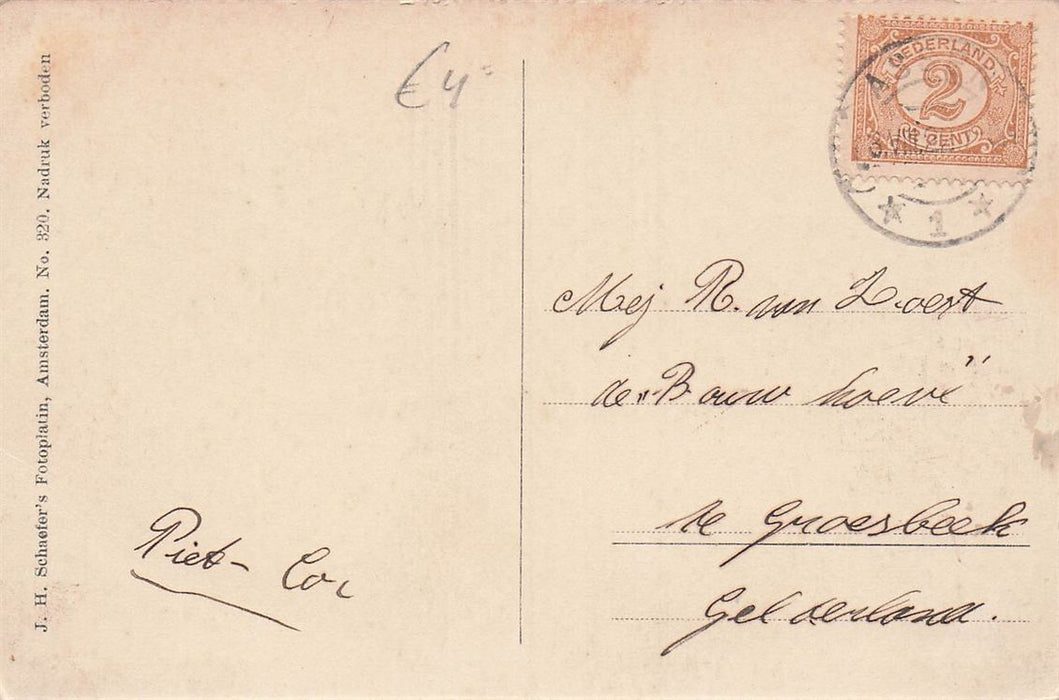 J. H. Schaefer's Fotoplatin, Amsterdam. No. 320. Nadruk verboden
€ 4=
NEDERLAND
2
CENT
1
Mej R. van Zoest
de "Bouw hoeve"
te Groesbeek
Gelderland.
Piet - Cor